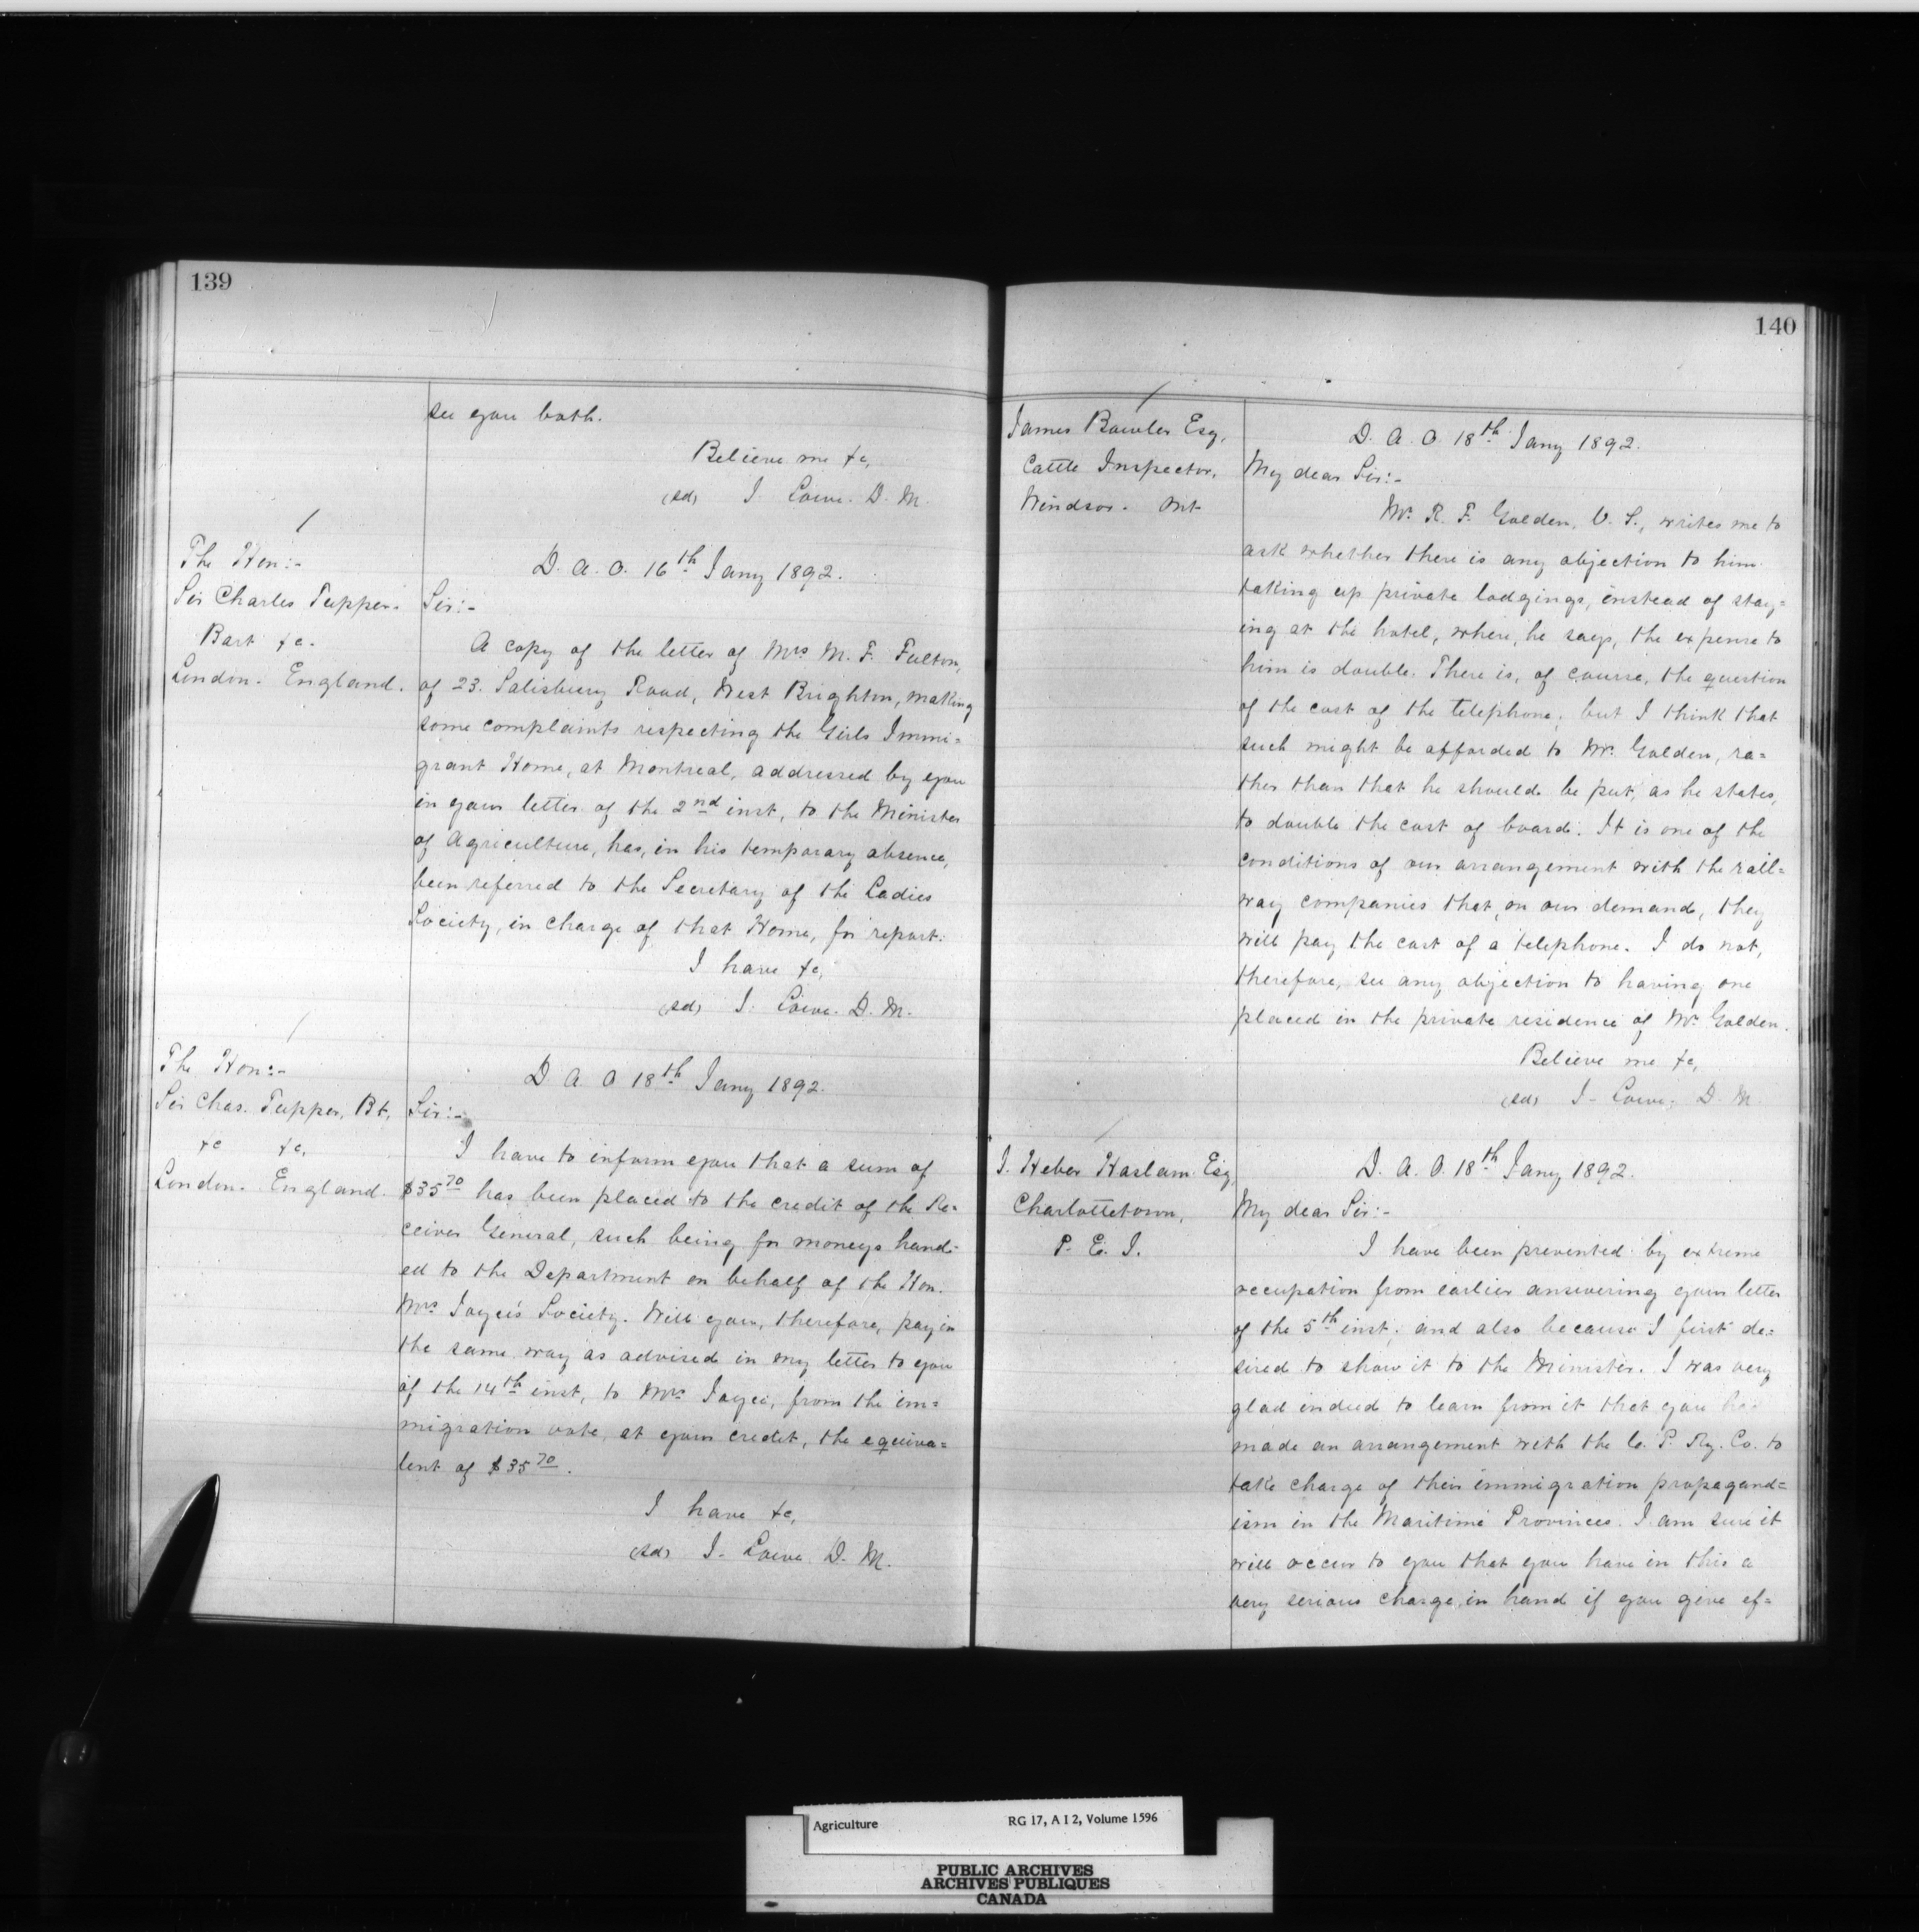 139
see you both.
Believe me &c,
(sd) J. Lowe. D. M.
The Hon:-
Sir Charles Tupper.
Bart &c.
London. England.
D. A. O. 16th Jany 1892.
Sir:-
A copy of the letter of Mrs M. F. Fulton,
of 23. Salisbury Road, West Brighton, making
some complaints respecting the Girls Immi=
grant Home, at Montreal, addressed by you
in your letter of the 2nd inst, to the Minister
of Agriculture, has, in his temporary absence,
been referred to the Secretary of the Ladies
Society, in charge of that Home, for report.
I have &c,
(sd) J. Lowe. D. M.
The Hon:-
Sir Chas. Tupper, Bt,
&c &c,
London. England.
D. A. O 18th Jany 1892.
Sir:-
I have to inform you that a sum of
$35 70 has been placed to the credit of the Re=
ceiver General, such being for moneys hand=
ed to the Department on behalf of the Hon.
Mrs Joyce's Society. Will you, therefore, pay in
the same way as advised in my letter to you
of the 14th inst, to Mrs Joyce, from the im=
migration vote, at your credit, the equiva=
lent of $35 70.
I have &c,
(sd) J. Lowe. D. M.
140
James Bowler Esq,
Cattle Inspector,
Windsor. Ont
D. A. O. 18th Jany 1892.
My dear Sir:-
Mr. R. F. Golden, V. S., writes me to
ask whether there is any objection to him
taking up private lodgings, instead of stay=
ing at the hotel, where, he says, the expense to
him is double. There is, of course, the question
of the cost of the telephone; but I think that
such might be afforded to Mr. Golden, ra=
ther than that he should be put, as he states,
to double the cost of board. It is one of the
conditions of our arrangement with the rail=
way companies that, on our demand, they
will pay the cost of a telephone. I do not,
therefore, see any objection to having one
placed in the private residence of Mr. Golden.
Believe me &c,
(sd) J. Lowe, D. M
J. Heber Haslam Esq,
Charlottetown,
P. E. I.
D. A. O. 18th Jany 1892.
My dear Sir:-
I have been prevented by extreme
occupation from earlier answering your letter
of the 5th inst; and also because I first de=
sired to show it to the Minister. I was very
glad indeed to learn from it that you had
made an arrangement with the C. P. Ry. Co. to
take charge of their immigration propagand=
ism in the Maritime Provinces. I am sure it
will occur to you that you have in this a
very serious charge in hand if you give ef=
Agriculture RG 17, A I 2, Volume 1596
PUBLIC ARCHIVES
ARCHIVES PUBLIQUES
CANADA